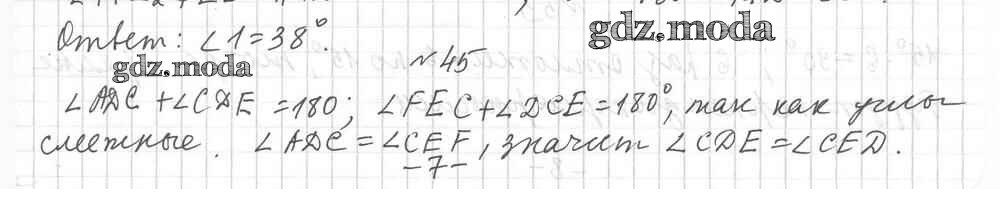 Ответ: ∠1=38°.
gdz.moda
gdz.moda
№45
∠ADC+∠CDE=180; ∠FEC+∠DCE=180°, так как углы
смежные. ∠ADC=∠CEF, значит ∠CDE=∠CED.
-7-